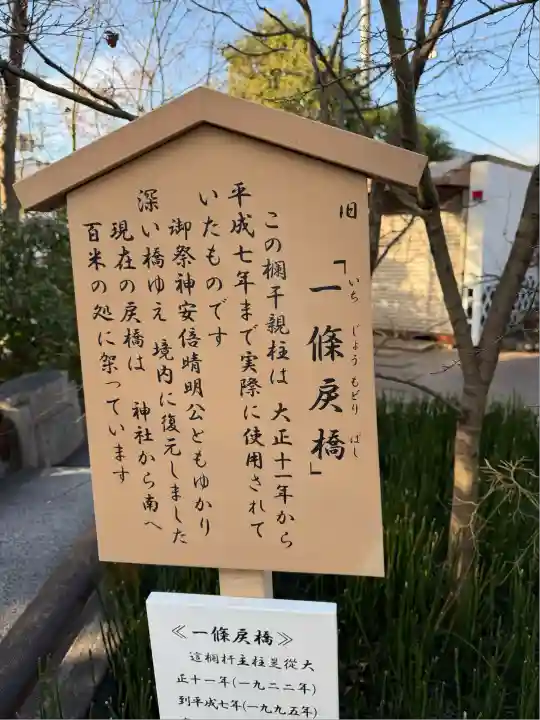 旧
「一條戻橋」
いち じょう もどり ばし
この欄干親柱は 大正十一年から
平成七年まで実際に使用されて
いたものです
御祭神安倍晴明公ともゆかり
深い橋ゆえ 境内に復元しました
現在の戻橋は 神社から南へ
百米の処に架っています
≪一條戻橋≫
這欄杆主柱是從大
正十一年(一九二二年)
到平成七年(一九九五年)